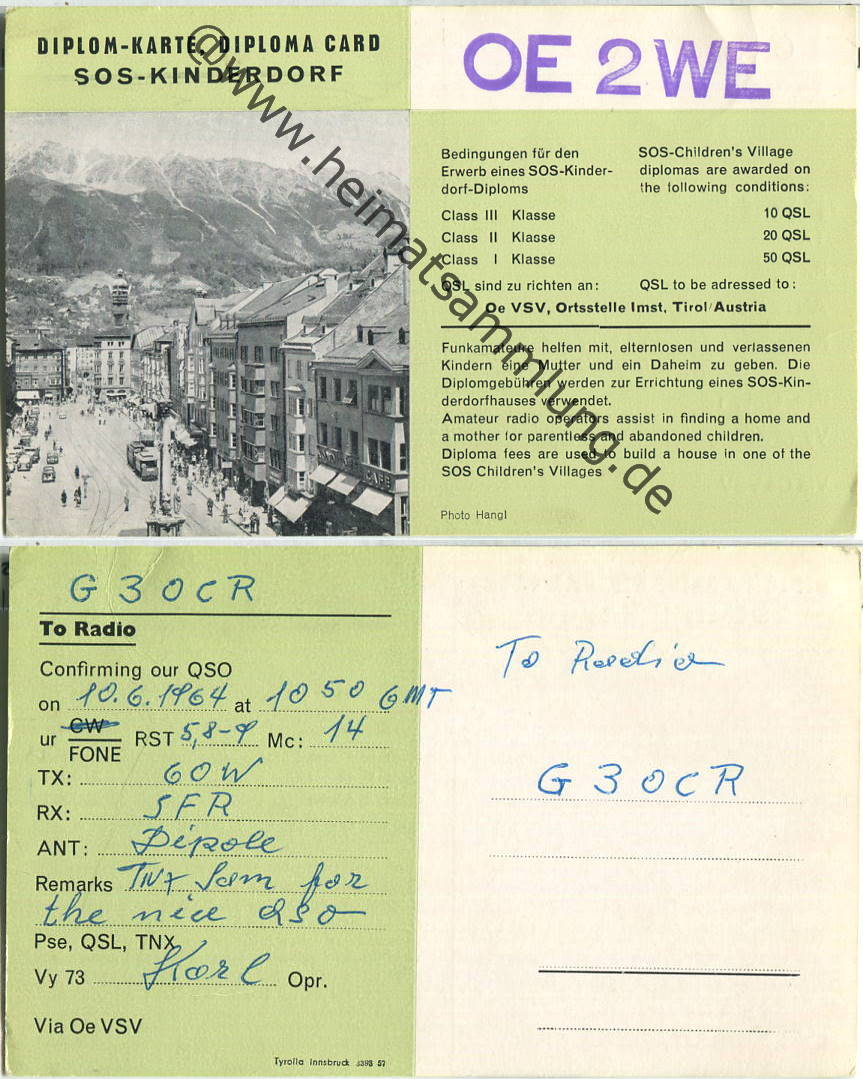 DIPLOM-KARTE, DIPLOMA CARD
SOS-KINDERDORF
OE 2 WE
@www.heimatsammlung.de
Bedingungen für den
Erwerb eines SOS-Kinder-
dorf-Diploms
SOS-Children's Village
diplomas are awarded on
the following conditions:
Class III Klasse 10 QSL
Class II Klasse 20 QSL
Class I Klasse 50 QSL
QSL sind zu richten an: QSL to be adressed to:
Oe VSV, Ortsstelle Imst, Tirol/Austria
Funkamateure helfen mit, elternlosen und verlassenen
Kindern eine Mutter und ein Daheim zu geben. Die
Diplomgebühren werden zur Errichtung eines SOS-Kin-
derdorfhauses verwendet.
Amateur radio operators assist in finding a home and
a mother for parentless and abandoned children.
Diploma fees are used to build a house in one of the
SOS Children's Villages
Photo Hangl
CAFE
G3OCR
To Radio
Confirming our QSO
on 10.6.1964 at 1050 GMT
ur CW RST 5,8-9 Mc: 14
FONE
TX: 60W
RX: SFR
ANT: Dipole
Remarks TNX Sam for
the nice QSO
Pse, QSL, TNX
Vy 73 Karl Opr.
Via Oe VSV
Tyrolia Innsbruck 3393 57
To Radio
G3OCR